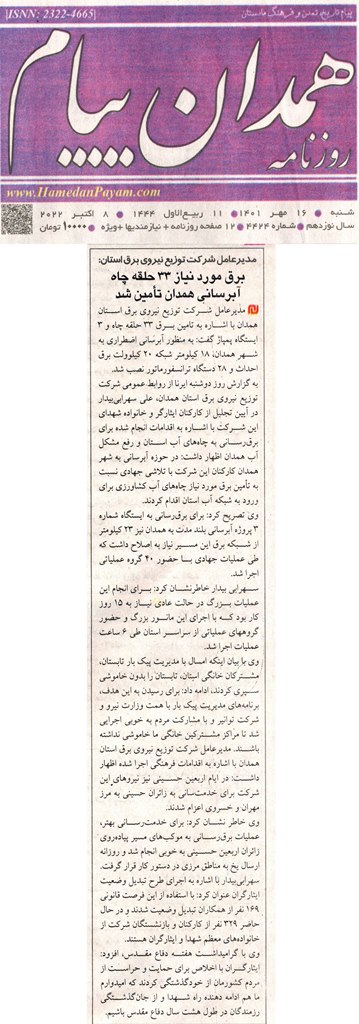 ISNN: 2322-4665
پیام تاریخ، تمدن و فرهنگ مادستان
روزنامه
همدان پیام
www.HamedanPayam.com
شنبه ● ۱۶ مهر ۱۴۰۱ ● ۱۱ ربیع‌الاول ۱۴۴۴ ● ۸ اکتبر ۲۰۲۲
سال نوزدهم ● شماره ۴۴۲۴ ● ۱۲ صفحه روزنامه + نیازمندیها +ویژه ● ۱۰۰۰۰ تومان
مدیرعامل شرکت توزیع نیروی برق استان:
برق مورد نیاز ۳۳ حلقه چاه
آبرسانی همدان تأمین شد
مدیرعامل شرکت توزیع نیروی برق استان
همدان با اشاره به تامین برق ۳۳ حلقه چاه و ۳
ایستگاه پمپاژ گفت: به منظور آبرسانی اضطراری به
شهر همدان، ۱۸ کیلومتر شبکه ۲۰ کیلوولت برق
احداث و ۲۸ دستگاه ترانسفورماتور نصب شد.
به گزارش روز دوشنبه ایرنا از روابط عمومی شرکت
توزیع نیروی برق استان همدان، علی سهرابی‌بیدار
در آیین تجلیل از کارکنان ایثارگر و خانواده شهدای
این شرکت با اشاره به اقدامات انجام شده برای
برق‌رسانی به چاه‌های آب استان و رفع مشکل
آب همدان اظهار داشت: در حوزه آبرسانی به شهر
همدان کارکنان این شرکت با تلاشی جهادی نسبت
به تأمین برق مورد نیاز چاه‌های آب کشاورزی برای
ورود به شبکه آب استان اقدام کردند.
وی تصریح کرد: برای برق‌رسانی به ایستگاه شماره
۳ پروژه آبرسانی بلند مدت به همدان نیز ۲۳ کیلومتر
از شبکه برق این مسیر نیاز به اصلاح داشت که
طی عملیات جهادی با حضور ۴۰ گروه عملیاتی
اجرا شد.
سهرابی بیدار خاطرنشان کرد: برای انجام این
عملیات بزرگ در حالت عادی نیاز به ۱۵ روز
کار بود که با اجرای این مانور بزرگ و حضور
گروههای عملیاتی از سراسر استان طی ۶ ساعت
عملیات اجرا شد.
وی با بیان اینکه امسال با مدیریت پیک بار تابستان،
مشترکان خانگی استان، تابستان را بدون خاموشی
سپری کردند، ادامه داد: برای رسیدن به این هدف،
برنامه‌های مدیریت پیک بار با همت وزارت نیرو و
شرکت توانیر و با مشارکت مردم به خوبی اجرایی
شد تا مراکز مشترکین خانگی ما خاموشی نداشته
باشند. مدیرعامل شرکت توزیع نیروی برق استان
همدان با اشاره به اقدامات فرهنگی اجرا شده اظهار
داشت: در ایام اربعین حسینی نیز نیروهای این
شرکت برای خدمت‌رسانی به زائران حسینی به مرز
مهران و خسروی اعزام شدند.
وی خاطر نشان کرد: برای خدمت‌رسانی بهتر،
عملیات برق‌رسانی به موکب‌های مسیر پیاده‌روی
زائران اربعین حسینی به خوبی انجام شد و روزانه
ارسال یخ به مناطق مرزی در دستور کار قرار گرفت.
سهرابی‌بیدار با اشاره به اجرای طرح تبدیل وضعیت
ایثارگران عنوان کرد: با استفاده از این فرصت قانونی
۱۶۹ نفر از همکاران تبدیل وضعیت شدند و در حال
حاضر ۳۲۹ نفر از کارکنان و بازنشستگان شرکت از
خانواده‌های معظم شهدا و ایثارگران هستند.
وی با گرامیداشت هفته دفاع مقدس، افزود:
ایثارگران با اخلاص برای حمایت و حراست از
مردم کشورمان از خودگذشتگی کردند که امیدوارم
ما هم ادامه دهنده راه شهدا و از جان‌گذشتگی
رزمندگان در طول هشت سال دفاع مقدس باشیم.